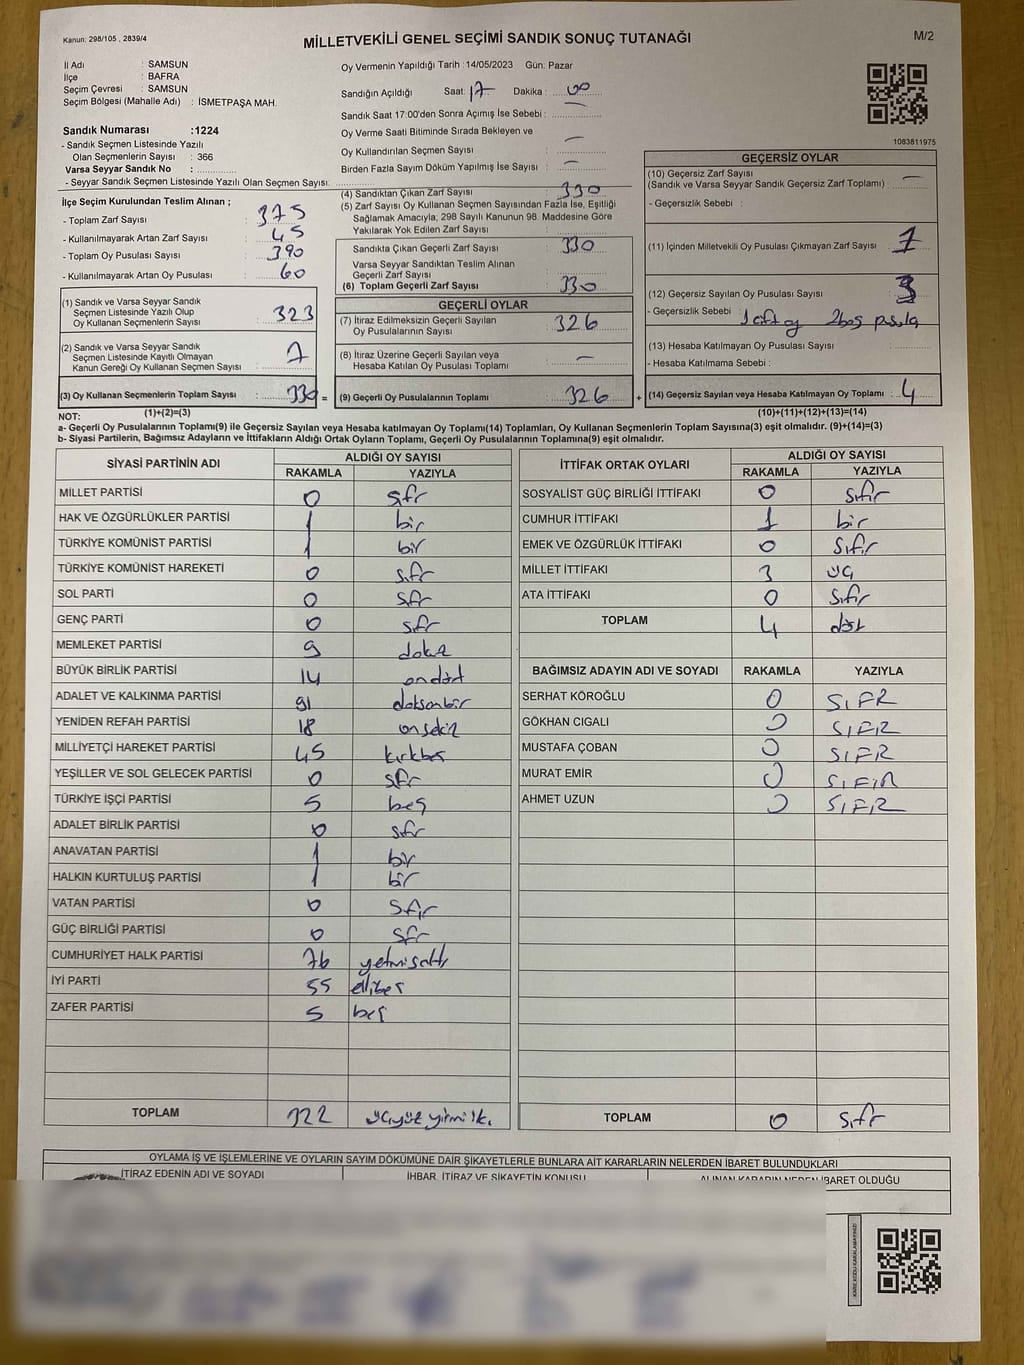 Kanun: 298/105 , 2839/4
MİLLETVEKİLİ GENEL SEÇİMİ SANDIK SONUÇ TUTANAĞI
M/2
İl Adı : SAMSUN
İlçe : BAFRA
Seçim Çevresi : SAMSUN
Seçim Bölgesi (Mahalle Adı) : İSMETPAŞA MAH.
Sandık Numarası :1224
- Sandık Seçmen Listesinde Yazılı
Olan Seçmenlerin Sayısı : 366
Varsa Seyyar Sandık No :
- Seyyar Sandık Seçmen Listesinde Yazılı Olan Seçmen Sayısı:
Oy Vermenin Yapıldığı Tarih :14/05/2023 Gün: Pazar
Sandığın Açıldığı Saat: 17 Dakika : 00
Sandık Saat 17:00'den Sonra Açımış İse Sebebi :
Oy Verme Saati Bitiminde Sırada Bekleyen ve
Oy Kullandırılan Seçmen Sayısı : —
Birden Fazla Sayım Döküm Yapılmış İse Sayısı : —
1083811975
İlçe Seçim Kurulundan Teslim Alınan ;
- Toplam Zarf Sayısı : 375
- Kullanılmayarak Artan Zarf Sayısı : 45
- Toplam Oy Pusulası Sayısı : 390
- Kullanılmayarak Artan Oy Pusulası : 60
(1) Sandık ve Varsa Seyyar Sandık
Seçmen Listesinde Yazılı Olup
Oy Kullanan Seçmenlerin Sayısı : 323
(2) Sandık ve Varsa Seyyar Sandık
Seçmen Listesinde Kayıtlı Olmayan
Kanun Gereği Oy Kullanan Seçmen Sayısı : 7
(3) Oy Kullanan Seçmenlerin Toplam Sayısı : 330 =
(4) Sandıktan Çıkan Zarf Sayısı : 330
(5) Zarf Sayısı Oy Kullanan Seçmen Sayısından Fazla İse, Eşitliği
Sağlamak Amacıyla; 298 Sayılı Kanunun 98. Maddesine Göre
Yakılarak Yok Edilen Zarf Sayısı :
Sandıkta Çıkan Geçerli Zarf Sayısı : 330
Varsa Seyyar Sandıktan Teslim Alınan
Geçerli Zarf Sayısı :
(6) Toplam Geçerli Zarf Sayısı : 330
GEÇERLİ OYLAR
(7) İtiraz Edilmeksizin Geçerli Sayılan
Oy Pusulalarının Sayısı : 326
(8) İtiraz Üzerine Geçerli Sayılan veya
Hesaba Katılan Oy Pusulası Toplamı : —
(9) Geçerli Oy Pusulalarının Toplamı : 326 +
GEÇERSİZ OYLAR
(10) Geçersiz Zarf Sayısı
(Sandık ve Varsa Seyyar Sandık Geçersiz Zarf Toplamı) : —
- Geçersizlik Sebebi :
(11) İçinden Milletvekili Oy Pusulası Çıkmayan Zarf Sayısı : 1
(12) Geçersiz Sayılan Oy Pusulası Sayısı : 3
- Geçersizlik Sebebi : 1 çift oy 2 boş pusula
(13) Hesaba Katılmayan Oy Pusulası Sayısı :
- Hesaba Katılmama Sebebi :
(14) Geçersiz Sayılan veya Hesaba Katılmayan Oy Toplamı : 4
NOT: (1)+(2)=(3) (10)+(11)+(12)+(13)=(14)
a- Geçerli Oy Pusulalarının Toplamı(9) ile Geçersiz Sayılan veya Hesaba katılmayan Oy Toplamı(14) Toplamları, Oy Kullanan Seçmenlerin Toplam Sayısına(3) eşit olmalıdır. (9)+(14)=(3)
b- Siyasi Partilerin, Bağımsız Adayların ve İttifakların Aldığı Ortak Oyların Toplamı, Geçerli Oy Pusulalarının Toplamına(9) eşit olmalıdır.
SİYASİ PARTİNİN ADI ALDIĞI OY SAYISI
RAKAMLA YAZIYLA
MİLLET PARTİSİ 0 sıfır
HAK VE ÖZGÜRLÜKLER PARTİSİ 1 bir
TÜRKİYE KOMÜNİST PARTİSİ 1 bir
TÜRKİYE KOMÜNİST HAREKETİ 0 sıfır
SOL PARTİ 0 sıfır
GENÇ PARTİ 0 sıfır
MEMLEKET PARTİSİ 9 dokuz
BÜYÜK BİRLİK PARTİSİ 14 ondört
ADALET VE KALKINMA PARTİSİ 91 doksanbir
YENİDEN REFAH PARTİSİ 18 onsekiz
MİLLİYETÇİ HAREKET PARTİSİ 45 kırkbeş
YEŞİLLER VE SOL GELECEK PARTİSİ 0 sıfır
TÜRKİYE İŞÇİ PARTİSİ 5 beş
ADALET BİRLİK PARTİSİ 0 sıfır
ANAVATAN PARTİSİ 1 bir
HALKIN KURTULUŞ PARTİSİ 1 bir
VATAN PARTİSİ 0 sıfır
GÜÇ BİRLİĞİ PARTİSİ 0 sıfır
CUMHURİYET HALK PARTİSİ 76 yetmişaltı
İYİ PARTİ 55 ellibeş
ZAFER PARTİSİ 5 beş
TOPLAM 322 üçyüz yirmi iki
İTTİFAK ORTAK OYLARI ALDIĞI OY SAYISI
RAKAMLA YAZIYLA
SOSYALİST GÜÇ BİRLİĞİ İTTİFAKI 0 sıfır
CUMHUR İTTİFAKI 1 bir
EMEK VE ÖZGÜRLÜK İTTİFAKI 0 sıfır
MİLLET İTTİFAKI 3 üç
ATA İTTİFAKI 0 sıfır
TOPLAM 4 dört
BAĞIMSIZ ADAYIN ADI VE SOYADI RAKAMLA YAZIYLA
SERHAT KÖROĞLU 0 SIFIR
GÖKHAN CIGALI 0 SIFIR
MUSTAFA ÇOBAN 0 SIFIR
MURAT EMİR 0 SIFIR
AHMET UZUN 0 SIFIR
TOPLAM 0 sıfır
OYLAMA İŞ VE İŞLEMLERİNE VE OYLARIN SAYIM DÖKÜMÜNE DAİR ŞİKAYETLERLE BUNLARA AİT KARARLARIN NELERDEN İBARET BULUNDUKLARI
İTİRAZ EDENİN ADI VE SOYADI İHBAR, İTİRAZ VE ŞİKAYETİN KONUSU ALINAN KARARIN NEDEN İBARET OLDUĞU